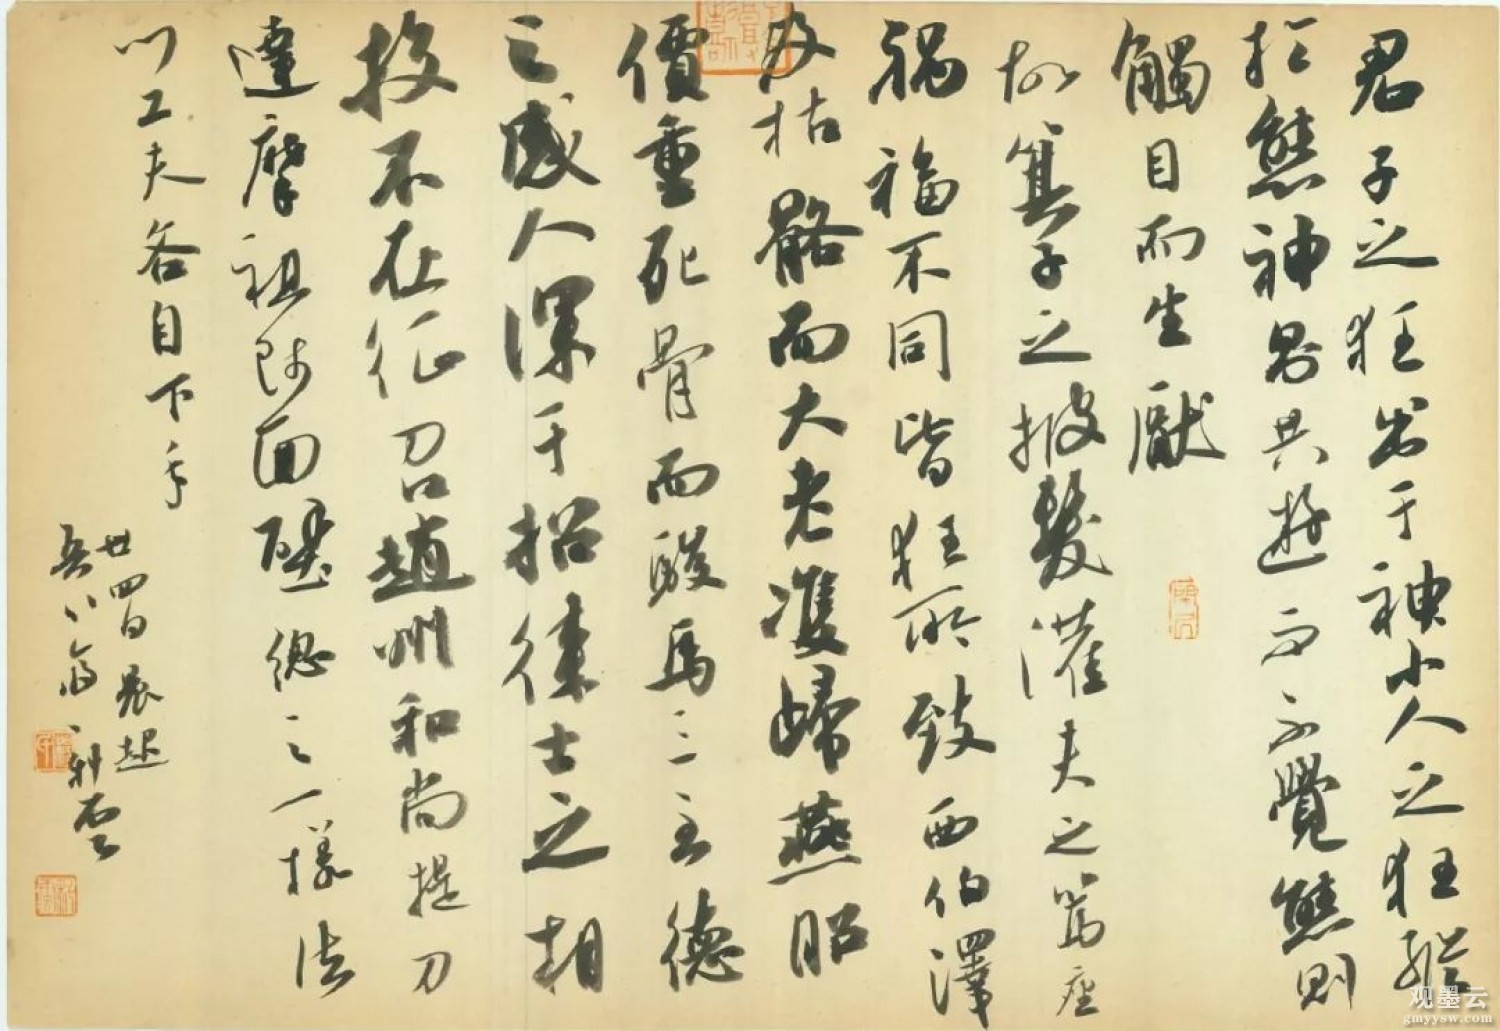 君子之狂出于神小人之狂縱
於態神則共遊而不覺態則
觸目而生厭
故箕子之披髮灌夫之罵座
禍福不同皆狂所致西伯澤
及枯骼而大老雙歸燕昭
價重死骨而駿馬三至德
之感人深于招徠士之相
投不在征召趙州和尚提刀
達摩祖師面壁總之一樣法
門工夫各自下手
廿四日晨起
觀墨云
gmyysw.com